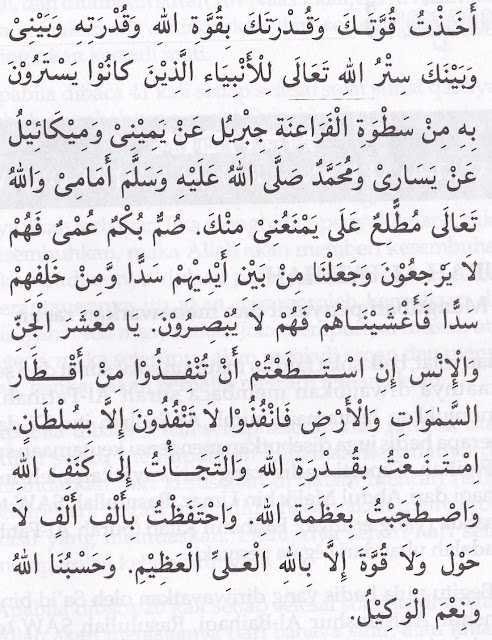 أَخَذْتُ قُوَّتَكَ وَقُدْرَتَكَ بِقُوَّه الله وَقُدْرَتِه وَبَيْنِىْ
وَبَيْنَكَ سِتْرُ الله تَعَالَى لِلْأَنْبِيَاء الَّذِيْنَ كَانُوْا يَسْتَرُوْنَ
بِه مِنْ سَطْوَة الْفَرَاعَنَة جِبْرِيْلُ عَنْ يَمِيْنِىْ وَمِيْكَائِيْلُ
عَنْ يَسَارِىْ وَمُحَمَّدٌ صَلَّى اللهُ عَلَيْهِ وَسَلَّمَ أَمَامِىْ وَاللهُ
تَعَالَى مُطَّلِعٌ عَلَيَّ يَمْنَعُنِىْ مِنْكَ. صُمٌّ بُكْمٌ عُمْىٌ فَهُمْ
لَا يَرْجِعُوْنَ وَجَعَلْنَا مِنْ بَيْنِ أَيْدِيهِم سَدًّا وَّمِنْ خَلْفِهِمْ
سَدًّا فَأَغْشَيْنَاهُمْ فَهُمْ لَا يُبْصِرُوْنَ. يَا مَعْشَرَ الْجِنِّ
وَالْإِنْسِ إِنِ اسْتَطَعْتُمْ أَنْ تَنْفُذُوْا مِنْ أَقْطَارِ
السَّموَاتِ وَالْأَرْضِ فَانْفُذُوْا لَا تَنْفُذُوْنَ إِلَّا بِسُلْطَانٍ.
اِمْتَنَعْتُ بِقُدْرَه الله وَالْتَجَأْتُ إِلَى كَنَفِ الله
وَاصْطَحَبْتُ بِعَظَمَة الله. وَاحْتَفَظْتُ بِأَلْفِ أَلْفِ لَا
حَوْلَ وَلَا قُوَّةَ إِلَّا بِاللهِ الْعَلِىِّ الْعَظِيْمِ. وَحَسْبُنَا اللهُ
وَنِعْمَ الْوَكِيْلُ.